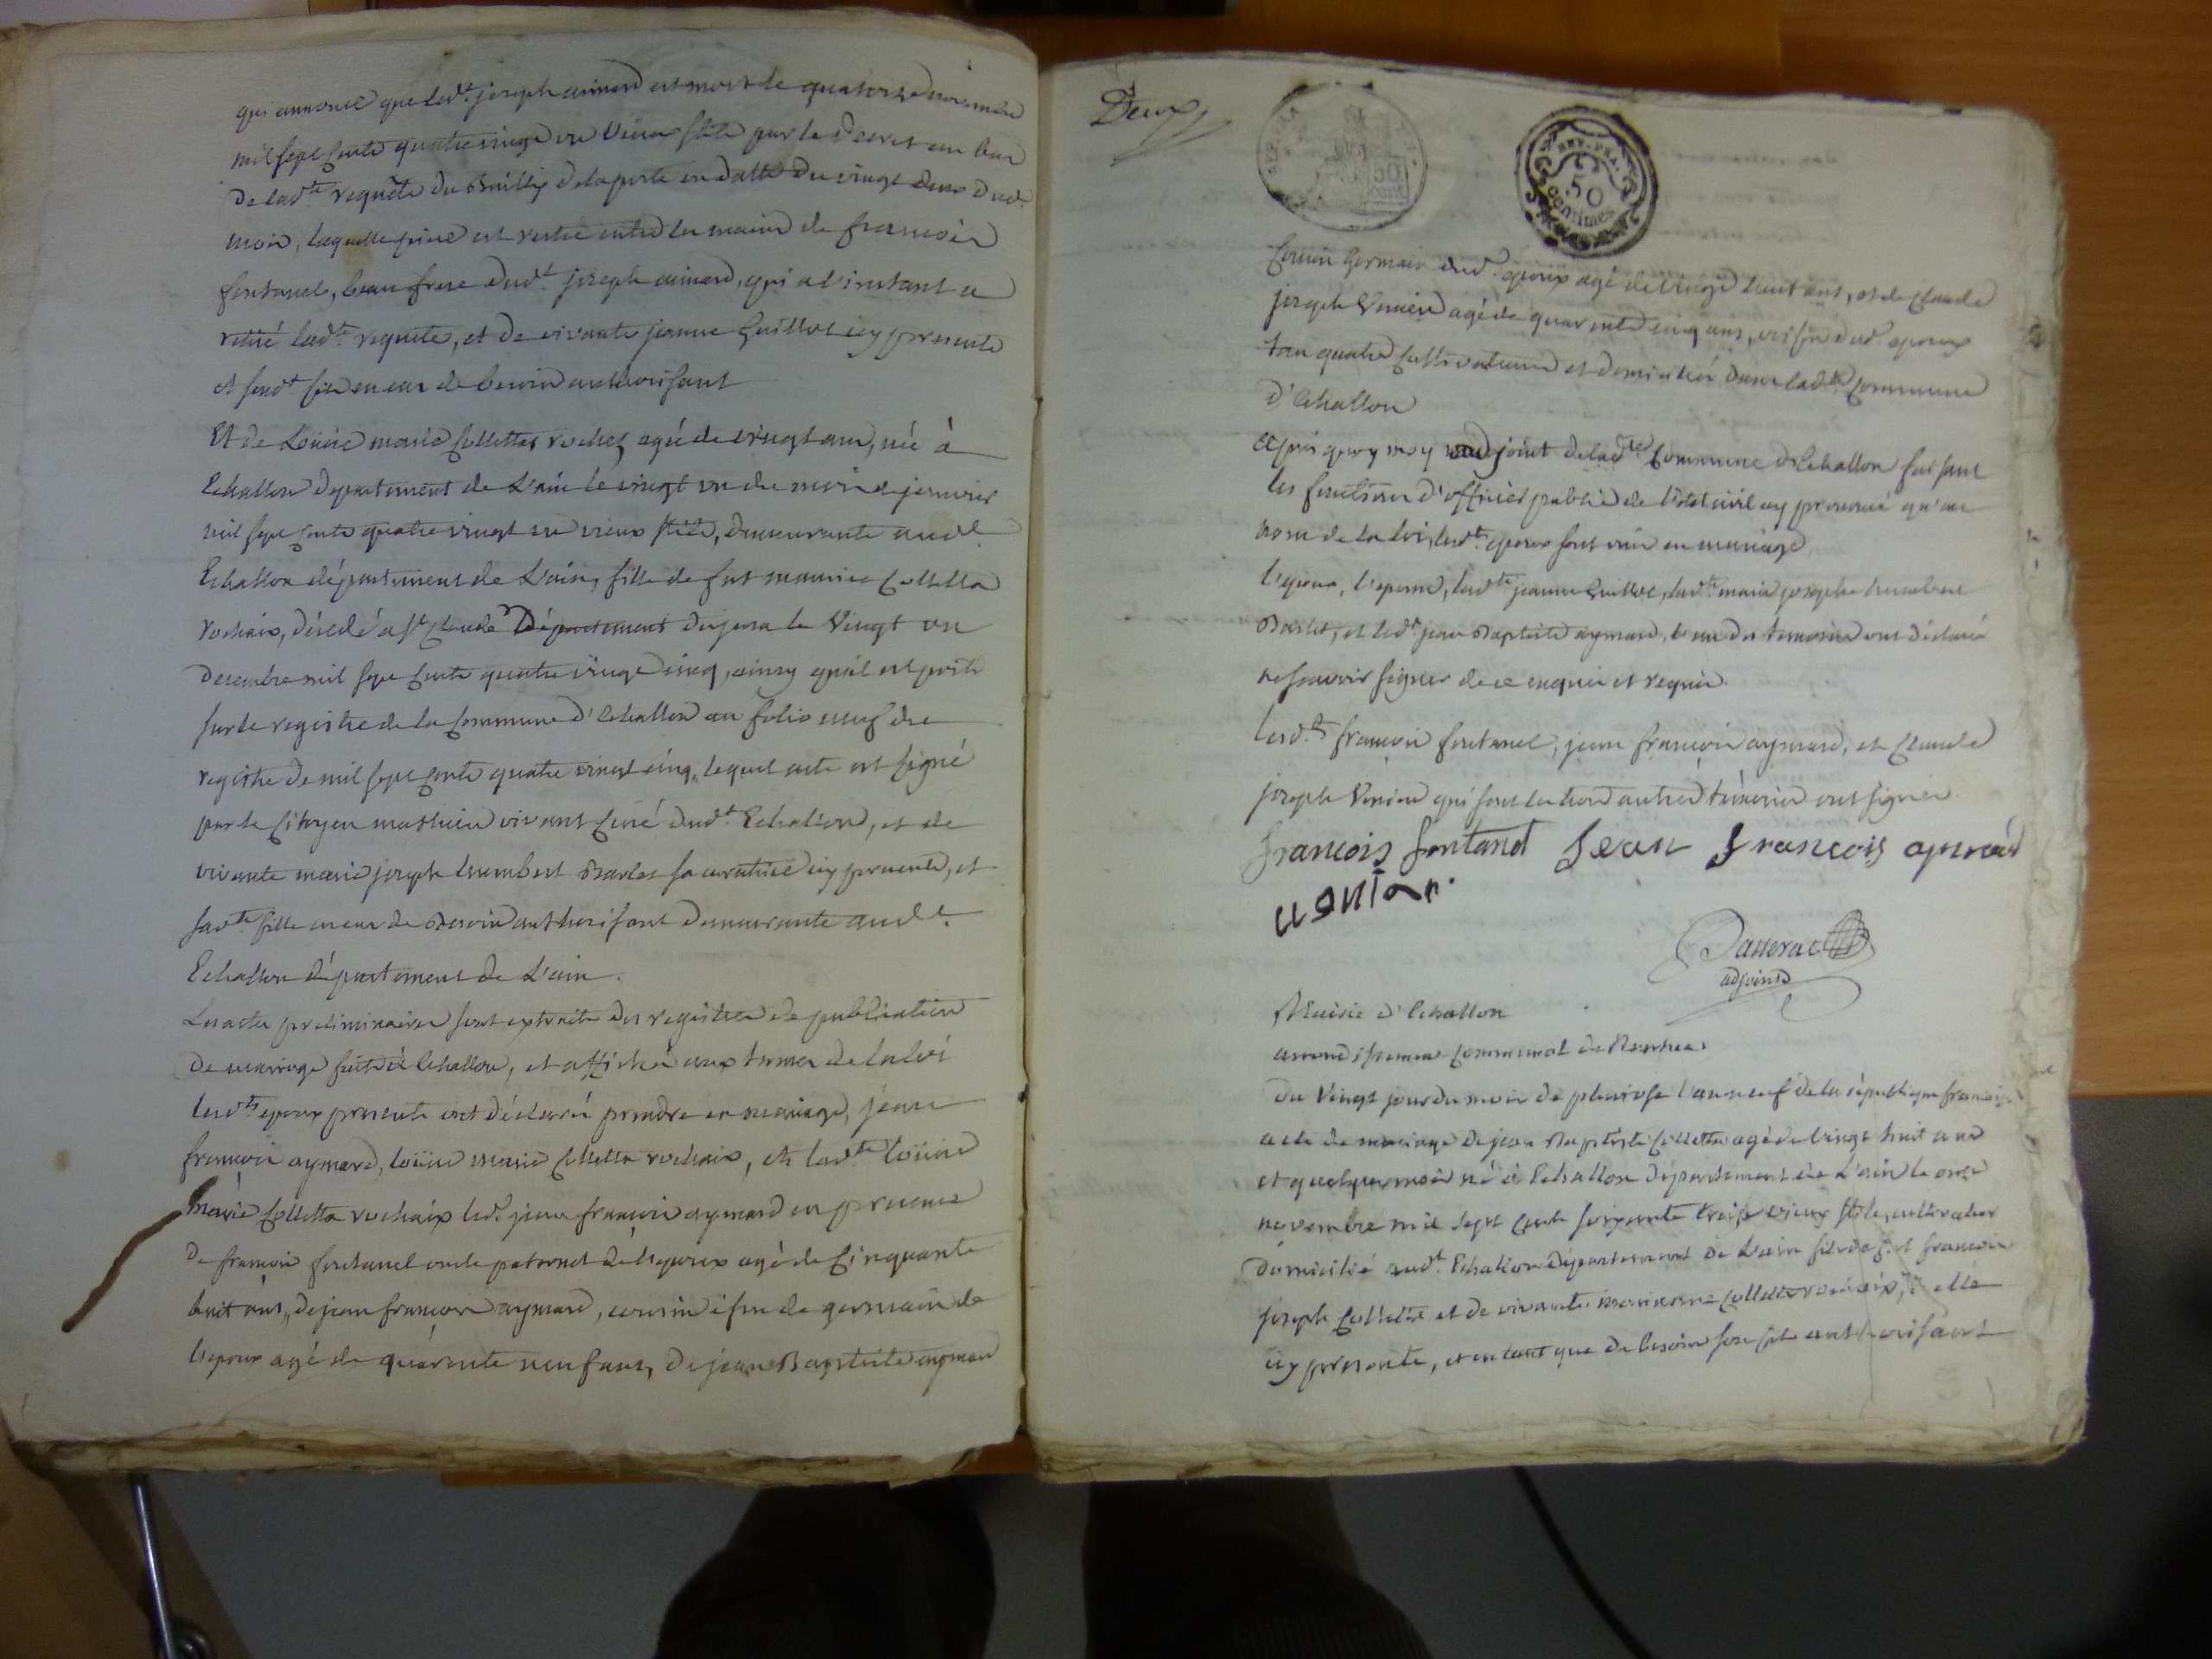 qui annonce que led.t joseph aimard est mort le quatorze
mil sept cents quatre vingt un vieux stile par le decret au bas
de lad.te requete du Bailly de la porte en datte du vingt deux dud.
mois, laquelle piece est restée entre les mains de francois
fontanel, beau frere dud.t joseph aimard, qui a l'instant a
retiré lad.te requete, et de vivante jeanne Guillot icy presente
et sond.t fils en cas de besoin authorisant
Et de Loüise marie Colletta rochaix agée de vingt ans, née à
Echallon departement de L'ain le vingt un du mois de janvier
mil sept cents quatre vingt un vieux stile, demeurante aud.t
Echallon département de L'ain, fille de fut maurice Colletta
rochaix, décédé a S.t Claude Département du jura le Vingt un
decembre mil sept cents quatre vingt cinq, ainsy qu'il est porté
sur le registre de la Commune d'Echallon au folio neuf du
registre de mil sept cents quatre vingt cinq, lequel acte est signé
par le Citoyen mathieu vivant Curé dud.t Echallon, et de
vivante marie joseph humbert Barlet sa curatrice icy presente, et
sad.te fille en cas de Besoin authorisant demeurante aud.t
Echallon département de L'ain.
Les actes preliminaires sont extraits des registres de publication
de mariage faits à Echallon, et affichés aux termes de la loi
lesd.ts epoux presents ont déclaré prendre en mariage, jean
francois aymard, loüise marie Colletta rochaix, et lad.te loüise
marie Colletta rochaix led.t jean francois aymard en presence
de francois fontanel oncle paternel de l'epoux agé de Cinquante
huit ans, de jean francois aymard, cousin issu de germain de
l'epoux agé de quarante neuf ans, de jean Baptiste aymard
Deux
REP. FRA.
50
Centimes
Cousin Germain dud.t epoux agé de vingt huit ans, et de Claude
joseph Venien agé de quarante cinq ans, voisin dud.t epoux
tous quatre Cultivateurs et domiciliés dans lad.te Commune
d'Echallon
après quoy moy adjoint de lad.te Commune d'Echallon faisant
les fonctions d'officier public de l'état civil ay prononcé qu'au
nom de la loi, lesd.ts epoux sont unis en mariage
l'epoux, l'epouse, lad.te jeanne Guillot, lad.te marie josephe humbert
Barlet, et led.t jean Baptiste aymard, l'un des temoins ont déclaré
ne scavoir signer de ce enquis et requis
lesd.ts francois fontanel, jean francois aymard, et Claude
joseph Venien qui sont les trois autres témoins ont signés
francois fontanel Jean francois aymard
Passerat
adjoint
Mairie d'Echallon
arrondissement Communal de Nantua
Du Vingt jour du mois de pluviose l'an neuf de la république francaise
acte de mariage de jean Baptiste Colletta agé de vingt huit ans
et quelques mois né à Echallon département de L'ain le onze
novembre mil sept cents soixante treize vieux stile, cultivateur
domicilié aud.t Echallon département de L'ain fils de fut francois
joseph Colletta et de vivante Colletta rochaix, elle
icy presente, et en tant que de besoin son fils authorisant